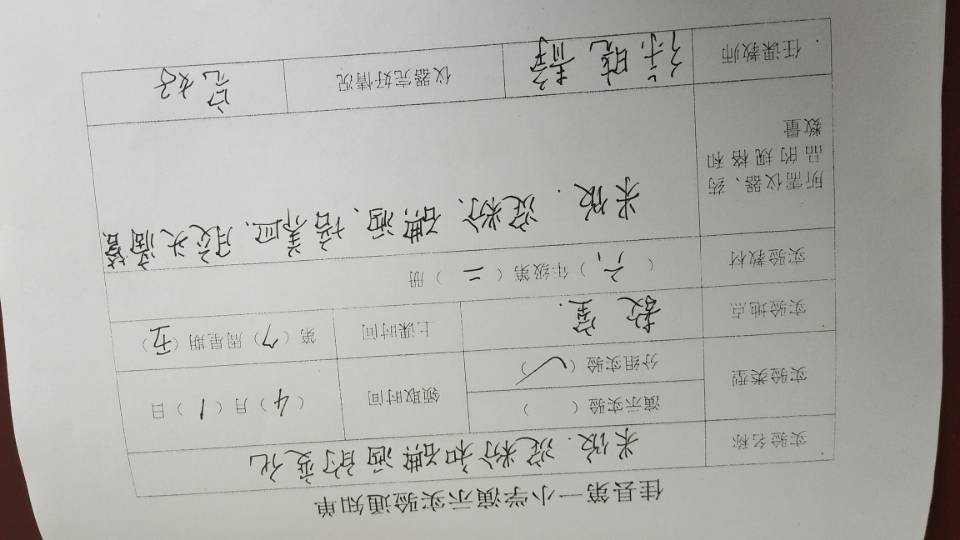 佳县第一小学演示实验通知单
实验名称 米饭、淀粉和碘酒的变化
实验类型 演示实验（ ） 领取时间 （4）月（1）日
分组实验（✓）
实验地点 教室. 上课时间 第（7）周星期（五）
实验教材 （六）年级第（二）册
所需仪器、药品的规格和数量 米饭、淀粉、碘酒、培养皿、胶头滴管
任课教师 徐晓婧 仪器完好情况 完好